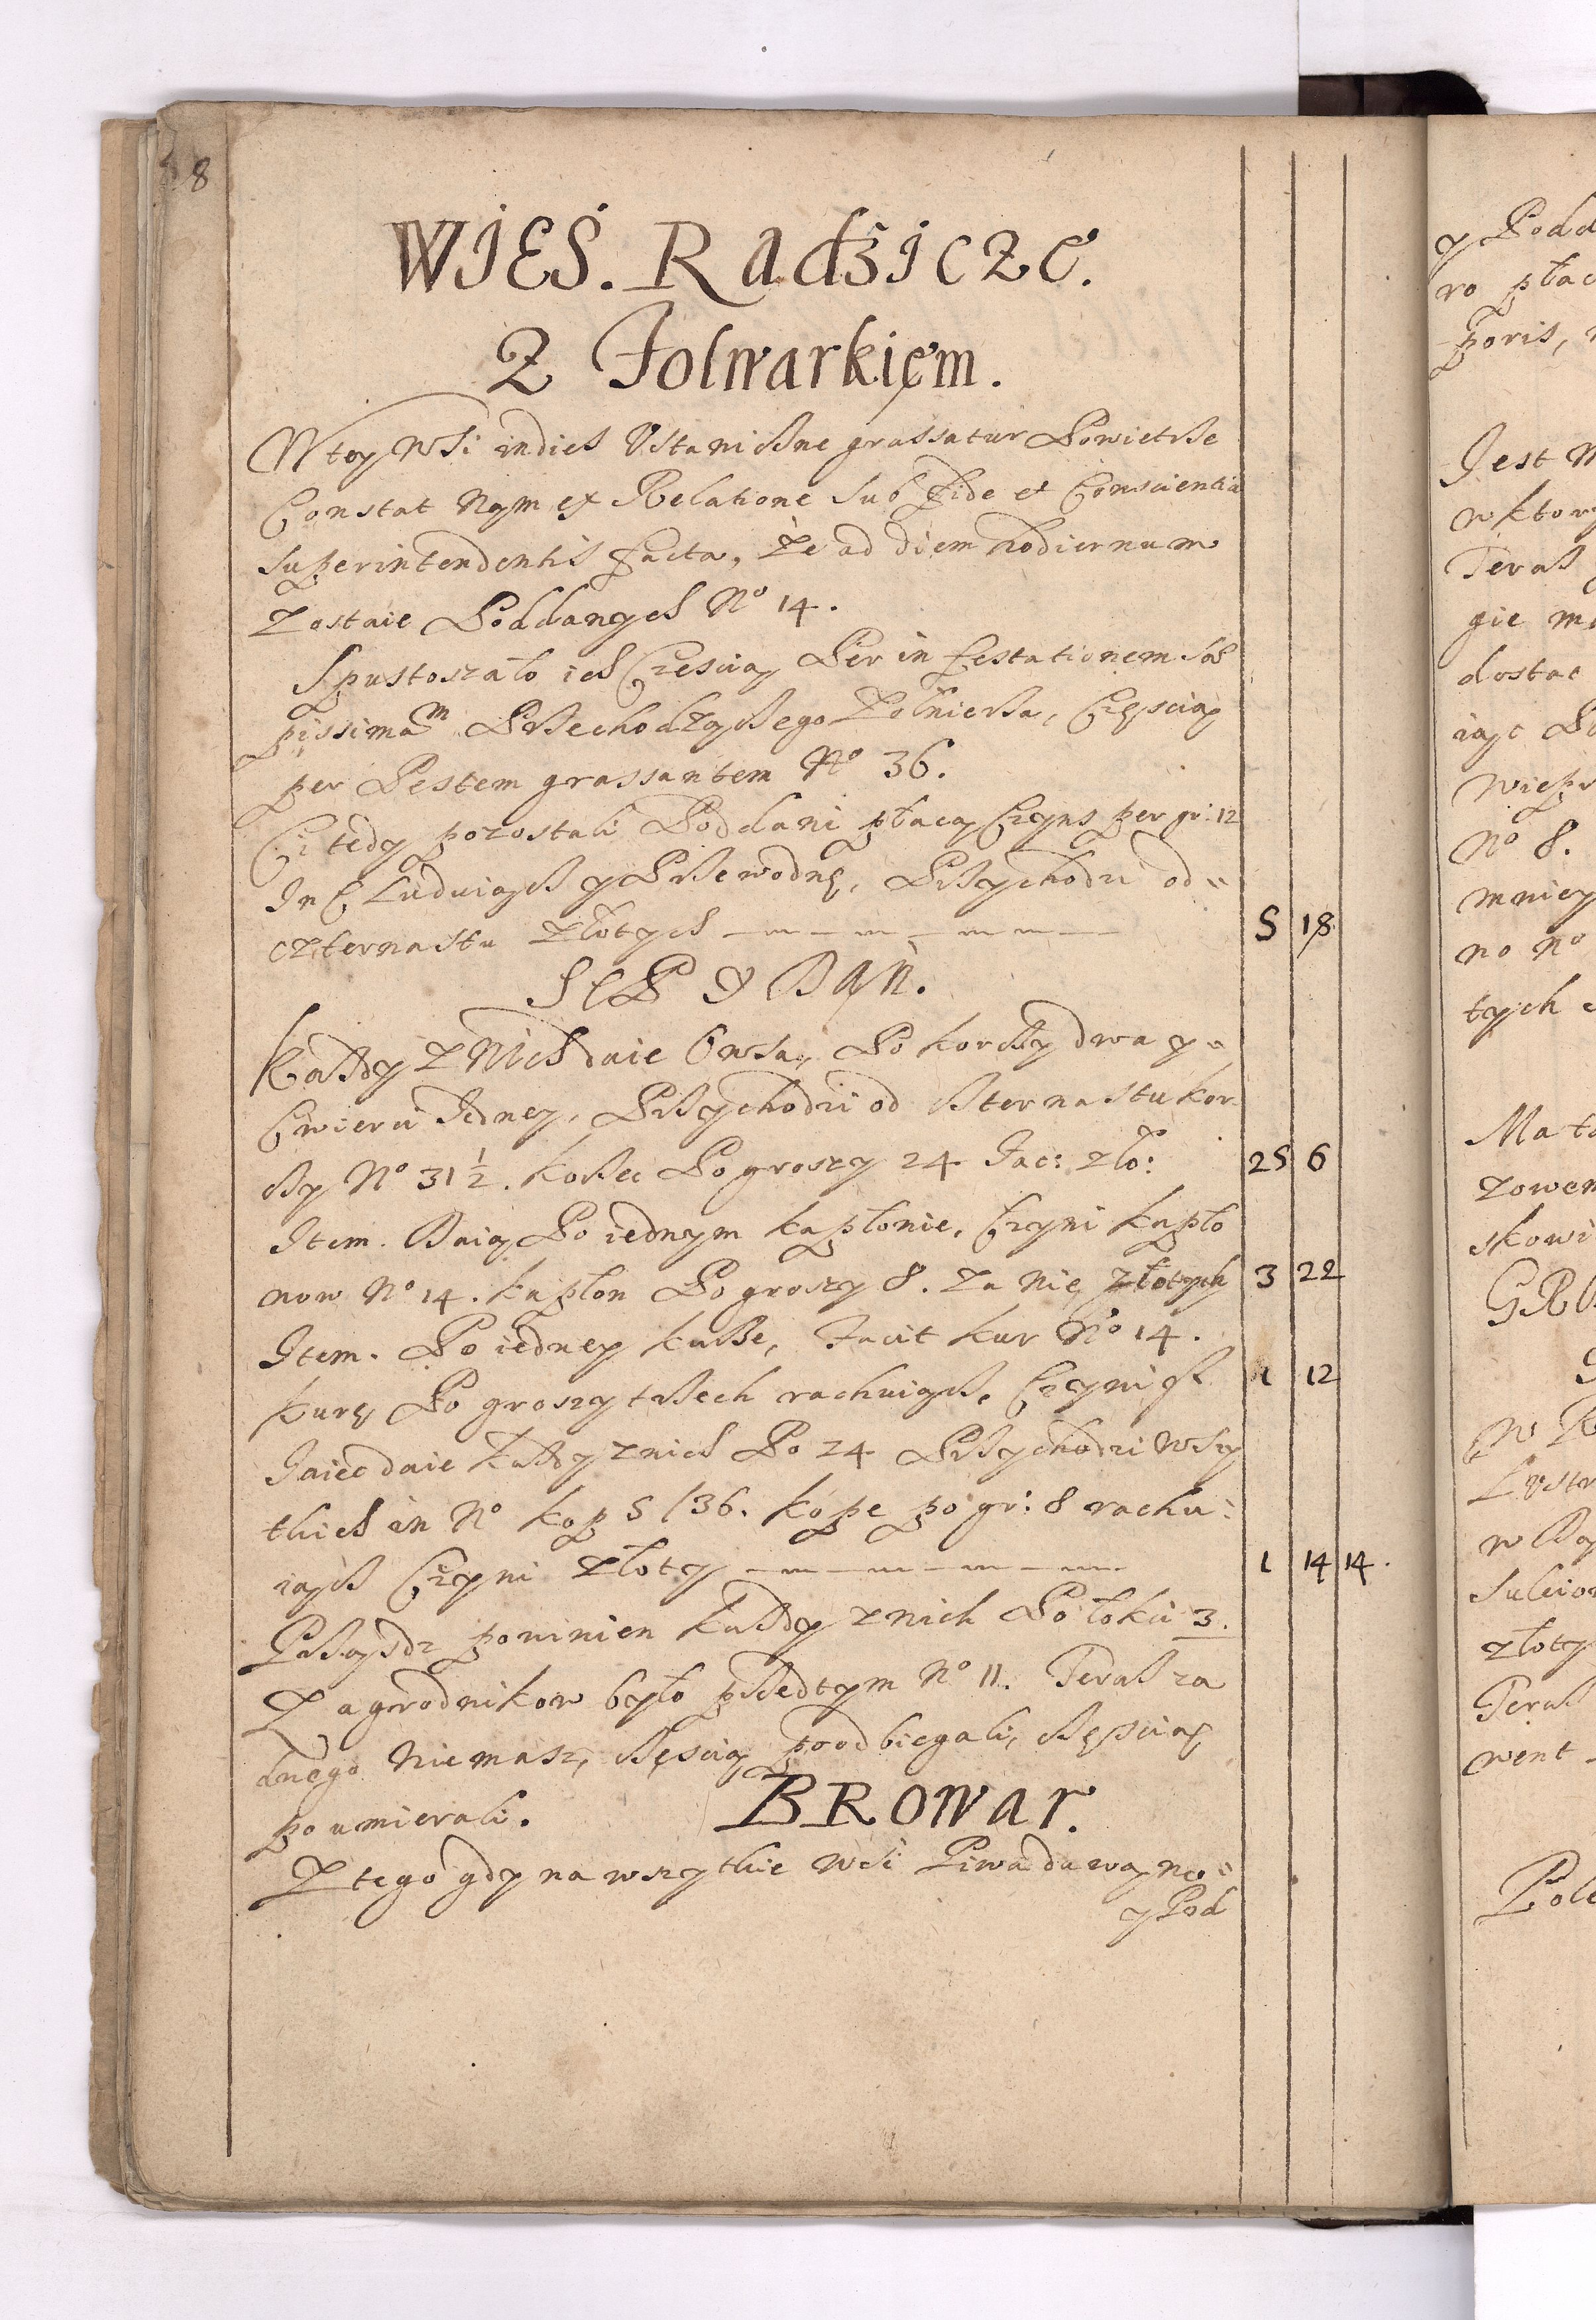 8
WIES. Radzicze.
Z Folwarkięm.
W tey Wsi indies Ustanicżne grassatur Powietrże
Constat Nym ex Relatione sub fide et Conscientia
superintendentis facta, że ad diem hodiernum
Zostaie Poddanych No 14.
Spustoszało ich Cżescią Per infestationem sæ
pissimam Przechodzącżego Żołnierża, Cżęscią
per Pestem grassantem No 36.
Ci tedy pozostali Poddani płacą Czyns per gr: 12
In C Ludniąsz y Przewodnę, Przychodzi od
czternastu Złotych 5 18
SEP Y DAŃ.
Każdy z Nich daie Owsa, Po korcży dwa y
Cwierci Jedney, Przychodzi od Czternastu kor
cży No 31 1/2. korżec Po groszy 24 Fac: zło: 25 6
Item. Daią Po iednym kapłonie, Czyni kapło
now No 14. kapłon Po groszy 8. za nie złotych 3 22
Item. Po iedney kurże, Facit kur No 14.
kurę Po groszy trzech rachuiącż, Czyni fl 1 12
Jaiec daie każdy z nich Po 24 Przychodzi wszy
tkich in No kop 5 /36. kopę po gr: 8 rachu
iącż Czyni Złoty 1 14 14.
Prżąsdz powinien każdy z nich Po łokci 3.
Zagrodnikow było przedtym No 11. Teraż za
dnego Niemasz, Cżęscią poodbiegali, Cżęscią
poumierali. BROWAR.
Z tego gdy na wszytkie Wsi Piwa dawano
y Pod
y Podd
ro płac
poris,
Jest
w ktory
Teraż
gie
dostac
iąc
No 8.
mniey
no No
tych
Ma to
zowem
skowi
w
złoty
Teraż
went
Pole